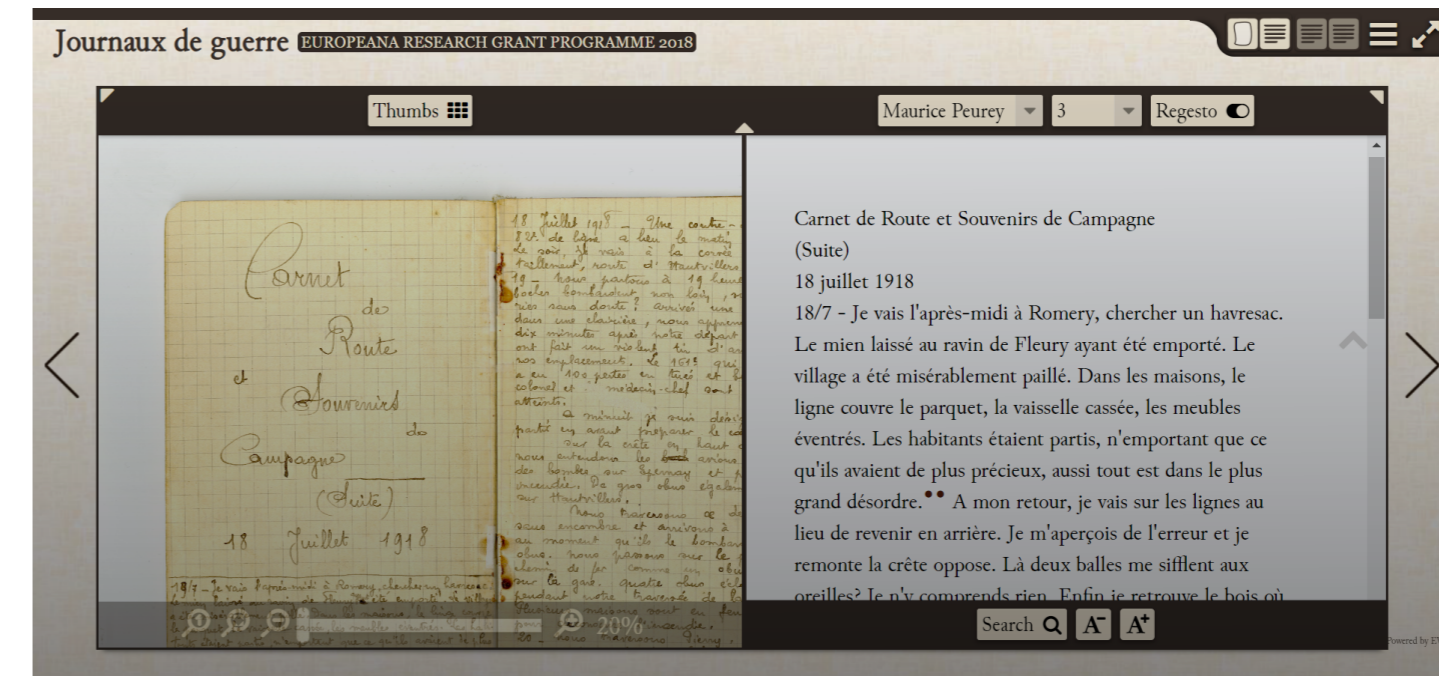 Journaux de guerre EUROPEANA RESEARCH GRANT PROGRAMME 2018
Thumbs
Maurice Peurey 3 Regesto
Carnet
de
Route
et
Souvenirs
de
Campagne
(Suite)
18 Juillet 1918
18/7 - Je vais l'après-midi à Romery, chercher un havresac.
18 Juillet 1918 - Une contre-
82e de ligne a lieu le matin
Le soir, je vais à la corvée
ravitaillement, route d'Hautvillers
19 - Nous partons à 19 heures
boches bombardent non loin,
ries sans doute? Arrivés une
dans une clairière, nous apprenons
dix minutes après notre départ
ont fait un violent tir d'
nos emplacements. Le 161e qui
a eu 100 pertes en tués et
colonel et médecin-chef sont
atteints.
A minuit je suis
partir en avant préparer le
Sur la crête en haut
nous entendons les avions
des bombes sur Epernay et
incendie. De gros obus
sur Hautvillers.
Nous traversons
sans encombre et arrivons à
au moment qu'ils le
obus. Nous passons sur le
chemin de fer comme un obus
sur la gare. Quatre obus
pendant notre traversée de
Plusieurs maisons sont en feu
incendie.
20 - Nous traversons Pierry
20%
Carnet de Route et Souvenirs de Campagne
(Suite)
18 juillet 1918
18/7 - Je vais l'après-midi à Romery, chercher un havresac.
Le mien laissé au ravin de Fleury ayant été emporté. Le
village a été misérablement paillé. Dans les maisons, le
ligne couvre le parquet, la vaisselle cassée, les meubles
éventrés. Les habitants étaient partis, n'emportant que ce
qu'ils avaient de plus précieux, aussi tout est dans le plus
grand désordre.•• A mon retour, je vais sur les lignes au
lieu de revenir en arrière. Je m'aperçois de l'erreur et je
remonte la crête oppose. Là deux balles me sifflent aux
oreilles? Je n'y comprends rien. Enfin je retrouve le bois où
Search A- A+
Powered by